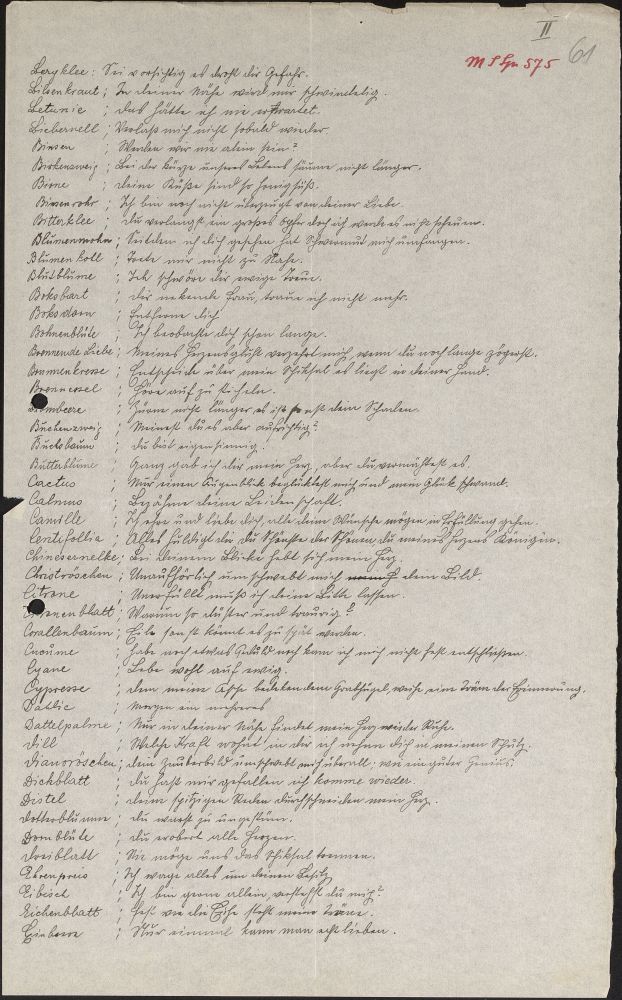 II
61
M S Gr 575
Bergklee : Sei vorsichtig es droht dir Gefahr.
Bilsenkraut ; In deiner Nähe wird mir schwindelig.
Betunie ; das hätte ich nie erwartet.
Biebernell ; Verlaß mich nicht sobald wieder.
Binsen ; Werden wir nie alein sein?
Birkenzweig ; Bei der Kürze unseres Lebens säume nicht länger.
Birne ; deine Küße sind so honigsüß.
Binsenrohr ; Ich bin noch nicht überzeugt von deiner Liebe.
Bitterklee ; du verlangst ein großes Opfer doch ich werde es nicht scheuen.
Blumenmohn ; Seitdem ich dich gesehen hat Schwermut mich umfangen.
Blumenkoll ; Trete mir nicht zu Nahe.
Blutblume ; Ich schwöre dir ewige Treue.
Boksbart ; dir nekende Frau, traue ich nicht mehr.
Boksdorn ; Entferne dich
Bohnenblüte ; Ich beobachte dich schon lange.
Brennende Liebe ; Meines Herzensglut verzehrt mich, wenn du noch lange zögerst.
Brunnenkresse ; Entscheide über mein Schiksal es liegt in deiner Hand.
Brennessel ; Höre auf zu sticheln.
Brombeere ; Zürne nicht länger es ist sonst dein Schaden.
Buchenzweig ; Meinest du es aber aufrichtig?
Buchsbaum ; du bist eigensinnig.
Butterblume ; Ganz gab ich dir mein Herz, aber du verschmähtest es.
Cactus ; Nur einen Augenblick beglücktest mich und mein Glük schwand.
Calmus ; Bezähme deine Leidenschaft.
Camille ; Ich ehre und liebe dich, alle deine Wünsche mögen in Erfüllung gehen.
Centifollia ; Alles huldigt dir du Schönste der Schönen du meines Herzens Königin.
Chinesernelke ; Bei deinem Blicke hebt sich mein Herz.
Christröschen ; Unaufhörlich umschwebt mich dein Bild.
Citrone ; Unerfüllt muß ich deine Bitte lassen.
Citronenblatt ; Warum so düster und traurig?
Corallenbaum ; Eile sonst könnt es zu spät werden.
; Habe noch etwas Geduld noch kann ich mich nicht fest entschließen.
Cyane ; Lebe wohl auf ewig.
Cypresse ; dem meine Asche bedekendem Grabhügel, weihe eine Träne der Erinnerung.
Dahlie ; Morgen ein mehreres
Dattelpalme ; Nur in deiner Nähe findet mein Herz wieder Ruhe.
Dill ; Welche Kraft wohnt in dir ich nehme dich in meinen Schutz.
Dianoröschen ; dein Zauberbild umschwebt mich überall, wie ein guter Genius
Dickblatt ; du hast mir gefallen ich komme wieder.
Distel ; deine spitzigen Reden durchschneiden mein Herz.
Dotterblumme ; du warst zu ungestüm.
Dornblüte ; du eroberst alle Herzen.
Dreiblatt ; Nie möge uns das Schiksal trennen.
Ehrenpreis ; Ich wage alles um deinen Besitz
Eibisch ; Ich bin gerne allein, verstehst du mich?
Eichenblatt ; Fest wie die Eiche steht meine Treue.
; Nur einmal kann man echt lieben.